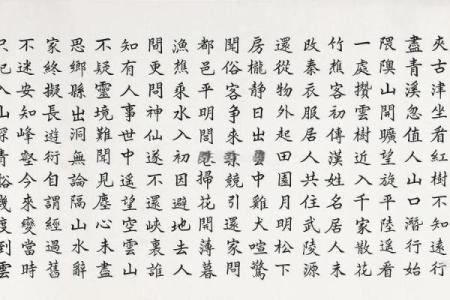 夾古津坐看紅樹不知遠行
盡青溪忽值人山口潛行始
隈隩山開曠望旋平陸遙看
一處攢雲樹近入千家散花
竹樵客初傳漢姓名居人未
改秦衣服居人共住武陵源
還從物外起田園月明松下
房櫳靜日出中雞犬喧驚
聞俗客爭來競引還家問
都邑平明閭掃花開薄暮
漁樵乘水入初因避地去人
間更問神仙遂不還峽裏誰
知有人事世中遙望空雲山
不疑靈境難聞見塵心未盡
思鄉縣出洞無論隔山水辭
家終擬長遊衍自謂經過舊
不迷安知峰壑今來變當時
只記入山深青谿幾度到雲